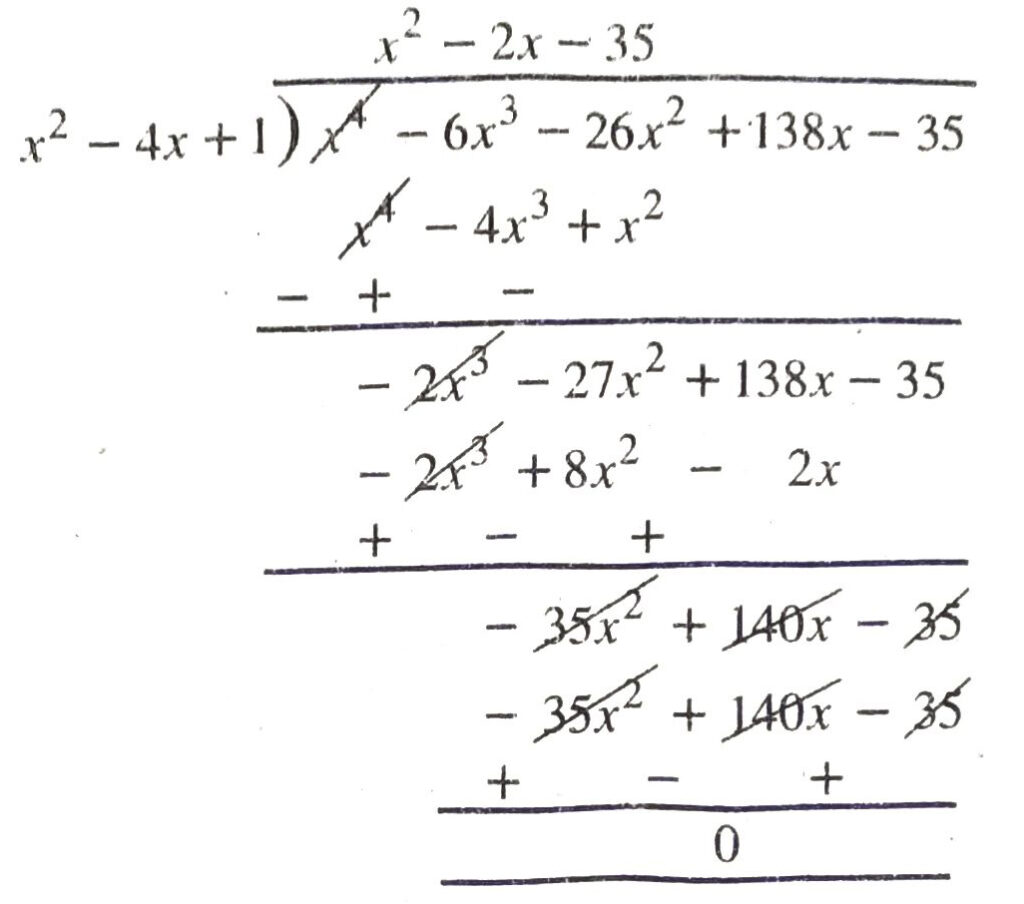 x² − 2x − 35
x² − 4x + 1 ) x⁴ − 6x³ − 26x² + 138x − 35
x⁴ − 4x³ + x²
− + −
− 2x³ − 27x² + 138x − 35
− 2x³ + 8x² − 2x
+ − +
− 35x² + 140x − 35
− 35x² + 140x − 35
+ − +
0